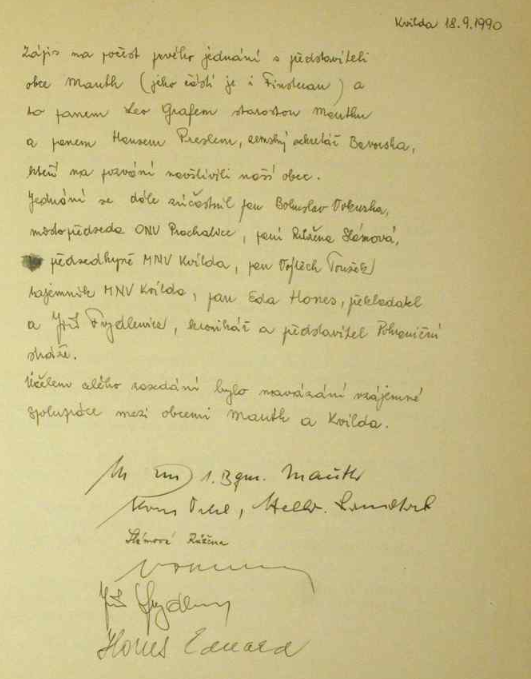 Kvilda 18.9.1990
Zápis na počest prvého jednání s představiteli
obce Mauth (jeho částí je i Finsterau) a
to panem Leo Grafem starostou Mauthu
a panem Hansem Preslem, zemský sekretář Bavorska,
kteří na pozvání navštívili naší obec.
Jednání se dále zúčastnil pan Bohuslav
místopředseda ONV Prachatice, paní Růžena Slámová,
předsedkyně MNV Kvilda, pan Vojtěch Toušek
tajemník MNV Kvilda, pan Eda Hones, překladatel
a Jiří, kronikář a představitel Pohraniční
stráže.
Účelem celého zasedání bylo navázání vzájemné
spolupráce mezi obcemi Mauth a Kvilda.
1. Bgm. Mauth
Slámová Růžena
Jiří
Hones Eduard